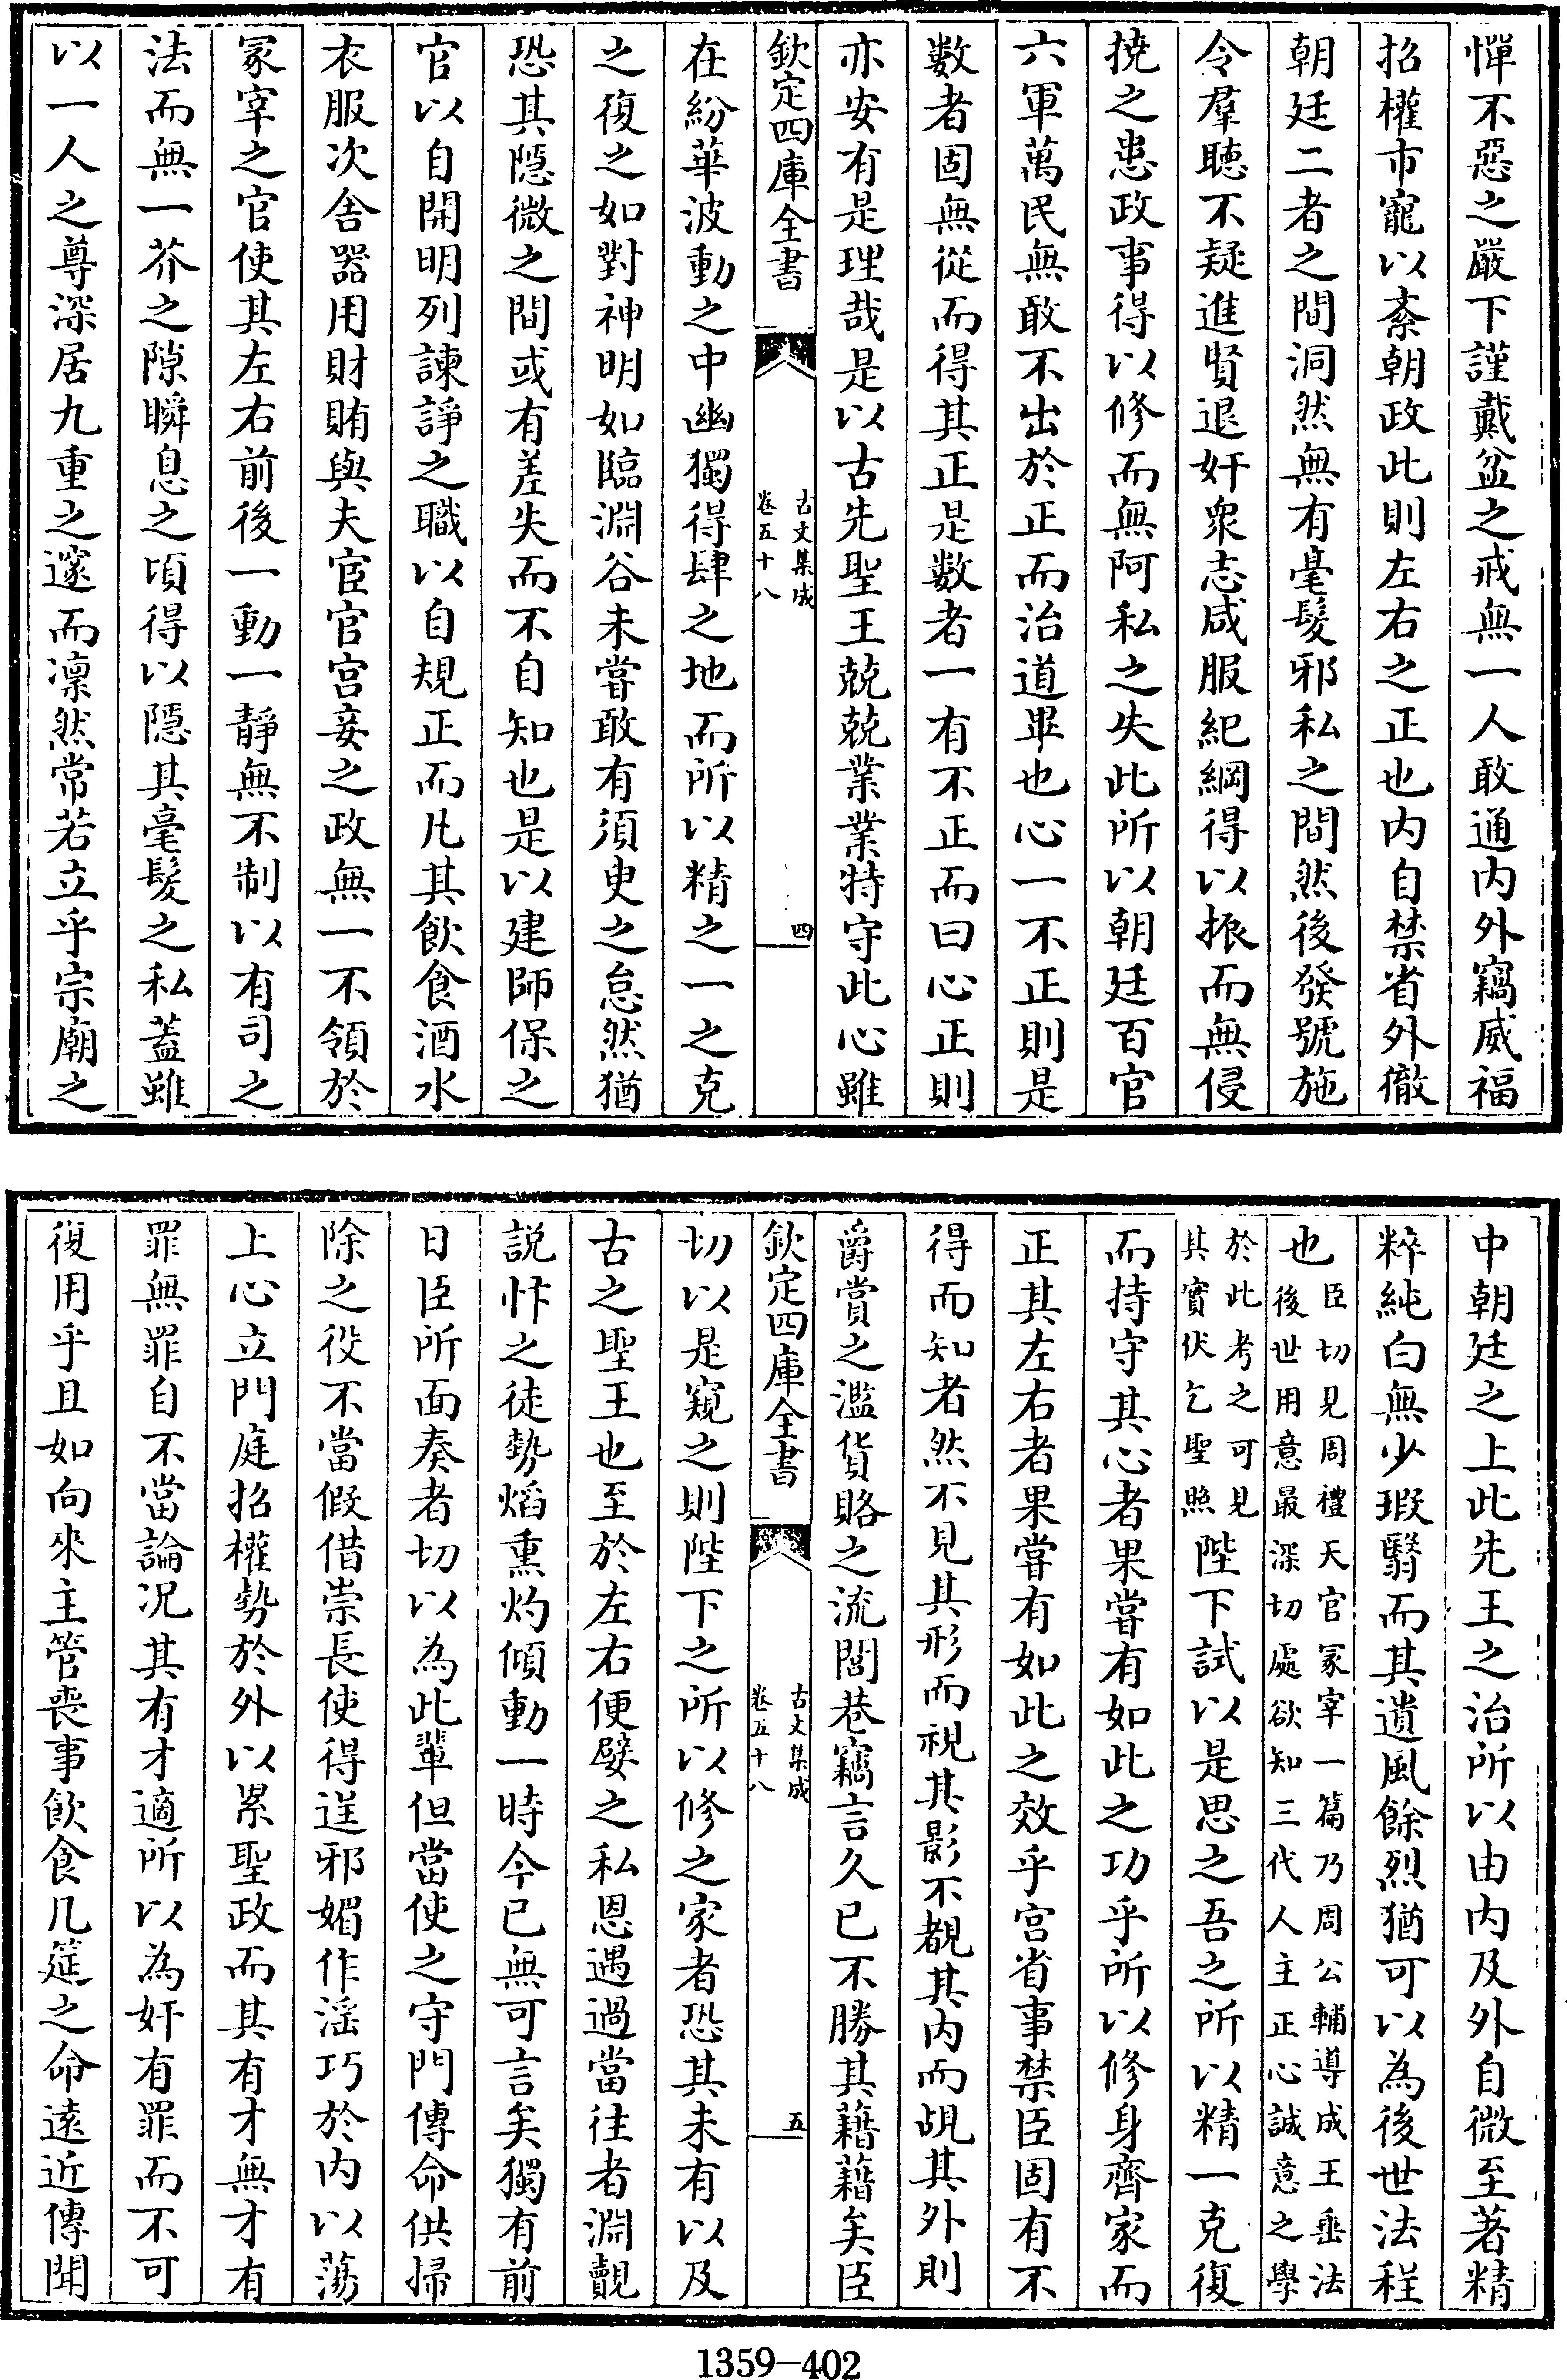 憚不惡之嚴下謹戴盆之戒無一人敢通内外竊威福
招權市寵以紊朝政此則左右之正也内自禁省外徹
朝廷二者之間洞然無有毫髮邪私之間然後發號施
令羣聴不疑進賢退奸衆志咸服紀綱得以振而無侵
撓之患政事得以修而無阿私之失此所以朝廷百官
六軍萬民無敢不出於正而治道畢也心一不正則是
數者固無從而得其正是數者一有不正而曰心正則
亦安有是理哉是以古先聖王兢兢業業特守此心雖
欽定四庫全書
古文集成
卷五十八
四
在紛華波動之中幽獨得肆之地而所以精之一之克
之復之如對神明如臨淵谷未嘗敢有須臾之怠然猶
恐其隱微之間或有差失而不自知也是以建師保之
官以自開明列諫諍之職以自規正而凡其飲食酒水
衣服次舍器用財賄與夫宦官宫妾之政無一不領於
冢宰之官使其左右前後一動一靜無不制以有司之
法而無一芥之隙瞬息之頃得以隱其毫髮之私蓋雖
以一人之尊深居九重之邃而凛然常若立乎宗廟之
中朝廷之上此先王之治所以由内及外自微至著精
粹純白無少瑕翳而其遺風餘烈猶可以為後世法程
也臣切見周禮天官冢宰一篇乃周公輔導成王垂法
後世用意最深切處欲知三代人主正心誠意之學
於此考之可見
其實伏乞聖照陛下試以是思之吾之所以精一克復
而持守其心者果嘗有如此之功乎所以修身齊家而
正其左右者果嘗有如此之效乎宫省事禁臣固有不
得而知者然不見其形而視其影不覩其内而覘其外則
爵賞之濫貨賂之流閭巷竊言久已不勝其藉藉矣臣
欽定四庫全書
古文集成
卷五十八
五
切以是窺之則陛下之所以修之家者恐其未有以及
古之聖王也至於左右便嬖之私恩遇過當往者淵覿
説忭之徒勢熖熏灼傾動一時今已無可言矣獨有前
日臣所面奏者切以為此輩但當使之守門傳命供掃
除之役不當假借崇長使得逞邪媚作淫巧於内以蕩
上心立門庭招權勢於外以累聖政而其有才無才有
罪無罪自不當論况其有才適所以為奸有罪而不可
復用乎且如向來主管喪事飲食几筵之命遠近傳聞
1359-402